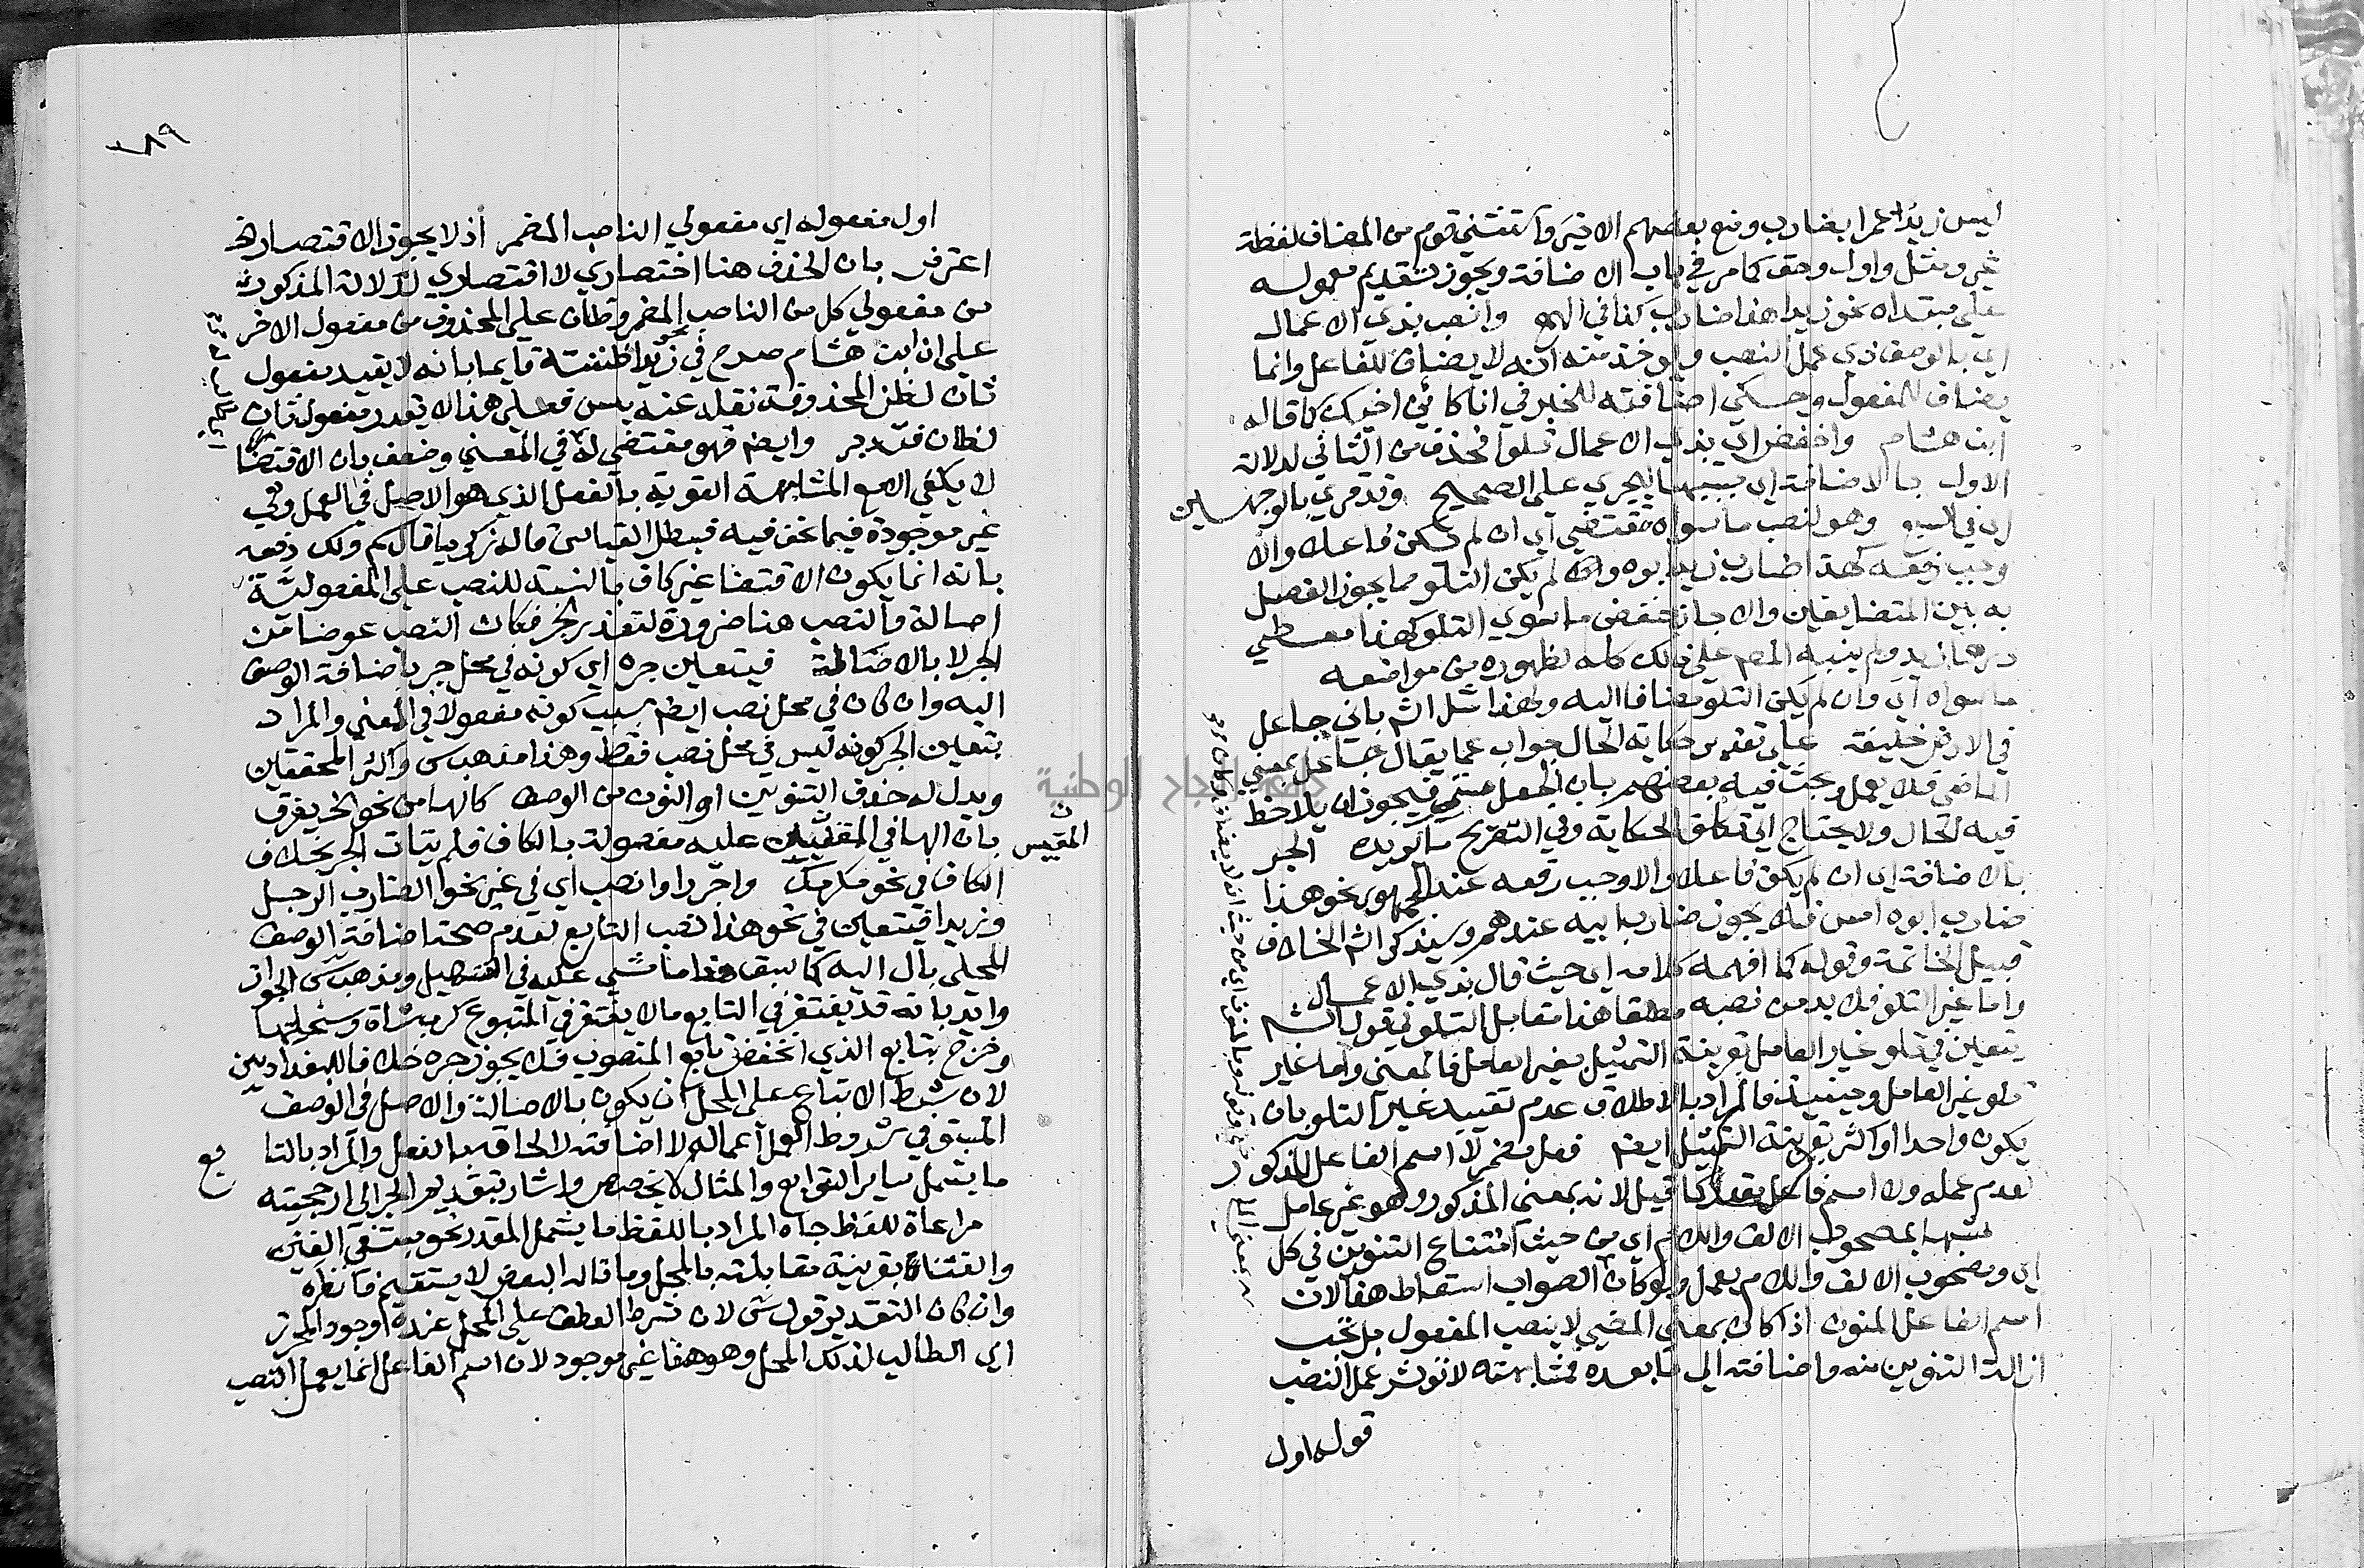 ليس زيدا عمرا بضارب ومنع بعضهم الاخير واستثنى قوم من المضاف لفظة
غير ومثل واول وحق كما مر في باب الاضافة ويجوز تقديم معموله
على مبتداه نحو زيدا هذا ضارب كذا في الهمع وانصب بذي الاعمال
اي بالوصف ذي عمل النصب ويؤخذ منه انه لا يضاف للفاعل وانما
يضاف للمفعول وحكى اضافته للخبر في انا كائن اخيك كما قاله
ابن هشام واخفض اي بذي الاعمال تلوا فحذف من الثاني لدلالة
الاول بالاضافة اي بسببها ليجري على الصحيح وقد قري بالوجهين
اي في السبع وهو لنصب ما سواه مقتضي اي ان لم يكن فاعلا والا
وجب رفعه كهذا ضارب زيد ابوه ولم يكن التلو مما يجوز الفصل
به بين المتضايفين والا جاز خفض ما سوى التلو كهذا معطي
درهما زيد ولم ينبه المص على ذلك كله لظهوره من مواضعه
ما سواه اي وان لم يكن التلو مضافا اليه ولهذا مثل الش باني جاعل
في الارض خليفة على تقدير حكاية الحال جواب عما يقال جاعل بمعنى
الماضي فلا يعمل وبحث فيه بعضهم بان الجعل مستمر فيجوز ان يلاحظ
فيه الحال ولا يحتاج الى تكلف الحكاية وفي التصريح ما يؤيده الجر
بالاضافة اي ان لم يكن فاعلا والا وجب رفعه عند الجمهور نحو هذا
ضارب ابوه امس فلا يجوز ضارب ابيه عندهم وسيذكر الش الخلاف
قبيل الخاتمة وقوله كما افهمه كلامه اي حيث قال بذي الاعمال
واما غير التلو فلا بد من نصبه مطلقا هذا مقابل التلو في قول الش
يتعين في تلو غير العامل بقرينة التمثيل بغير العامل فالمعنى واما غير
تلو غير العامل وحينئذ فالمراد بالاطلاق عدم تقييد غير التلو بان
يكون واحدا او اكثر بقرينة التمثيل ايضا فعل مضمر لا اسم الفاعل المذكور
لعدم عمله ولا اسم فاعل يقدر كما قيل لانه بمعنى المذكور وهو غير عامل
مشبها بمصحوب الالف واللام اي من حيث امتناع التنوين في كل
اي ومصحوب الالف واللام يعمل وكان الصواب اسقاط هذا لان
اسم الفاعل المنون اذا كان بمعنى المضي لا ينصب المفعول بل تجب
ازالة التنوين منه واضافته الى ما بعده فمشابهته لا تؤثر عمل النصب
قوله اول
١٨٩
اول مفعوله اي مفعولي الناصب المضمر اذ لا يجوز الاقتصار
اعترض بان الحذف هنا اختصاري لا اقتصاري لدلالة المذكور
من مفعولي كل من الناصب المضمر وظان على المحذوف من مفعول الاخر
على ان ابن هشام صرح في نحو زيدا ظننته قايما بانه لا يقدر مفعول
ثان لظن المحذوفة نقله عنه يس فعلى هذا لا يقدر مفعول ثان
لظان فتدبر وايضا فهو مقتضي له في المعنى وضعف بان الاقتضا
لا يكفي الا مع المشابهة القوية بالفعل الذي هو الاصل في العمل وهي
غير موجودة فيما نحن فيه فبطل القياس قاله زكريا قال سم ولك دفعه
بانه انما يكون الاقتضا غير كاف بالنسبة للنصب على المفعولية
اصالة والنصب هنا ضرورة لتعذر الجر فكان النصب عوضا من
الجر لا بالاصالة فيتعين جره اي كونه في محل جر باضافة الوصف
اليه وان كان في محل نصب ايضا بسبب كونه مفعولا في المعنى والمراد
بتعين الجر كونه ليس في محل نصب فقط وهذا مذهب س واكثر المحققين
ويدل له حذف التنوين او النون من الوصف كالها من نحو الخ يفرق
بان الها في المقيس عليه مفصولة بالكاف فلم يتات الجر بخلاف
المقيس
الكاف في نحو مكرمك واجرر او انصب اي في غير نحو الضارب الرجل
وزيدا فيتعين في نحو هذا نصب التابع لعدم صحة اضافة الوصف
المحلي بال اليه كما سبق هذا ما مشى عليه في التسهيل ومذهب س الجواز
وايد بانه قد يغتفر في التابع ما لا يغتفر في المتبوع كرب شاة وسخلتها
وخرج بتابع الذي انخفض تابع المنصوب فلا يجوز جره خلافا للبغداديين
لان شرط الاتباع على المحل ان يكون بالاصالة والاصل في الوصف
المستوفي شروط العمل اعماله لا اضافته لالحاقه بالفعل والمراد بالتابع
ما يشمل ساير التوابع والمثال لا يخصص واشار بتقديم الجر الى ارجحيته
مراعاة للفظ جاه المراد باللفظ ما يشمل المقدر نحو مبتغي الغنى
والفتاة بقرينة مقابلته بالمحل وما قاله البعض لا يستقيم فانظره
وان كان التقدير قول س لان شرط العطف على المحل عنده وجود المحرز
اي الطالب لذلك المحل وهو هنا غير موجود لان اسم الفاعل انما يعمل النصب